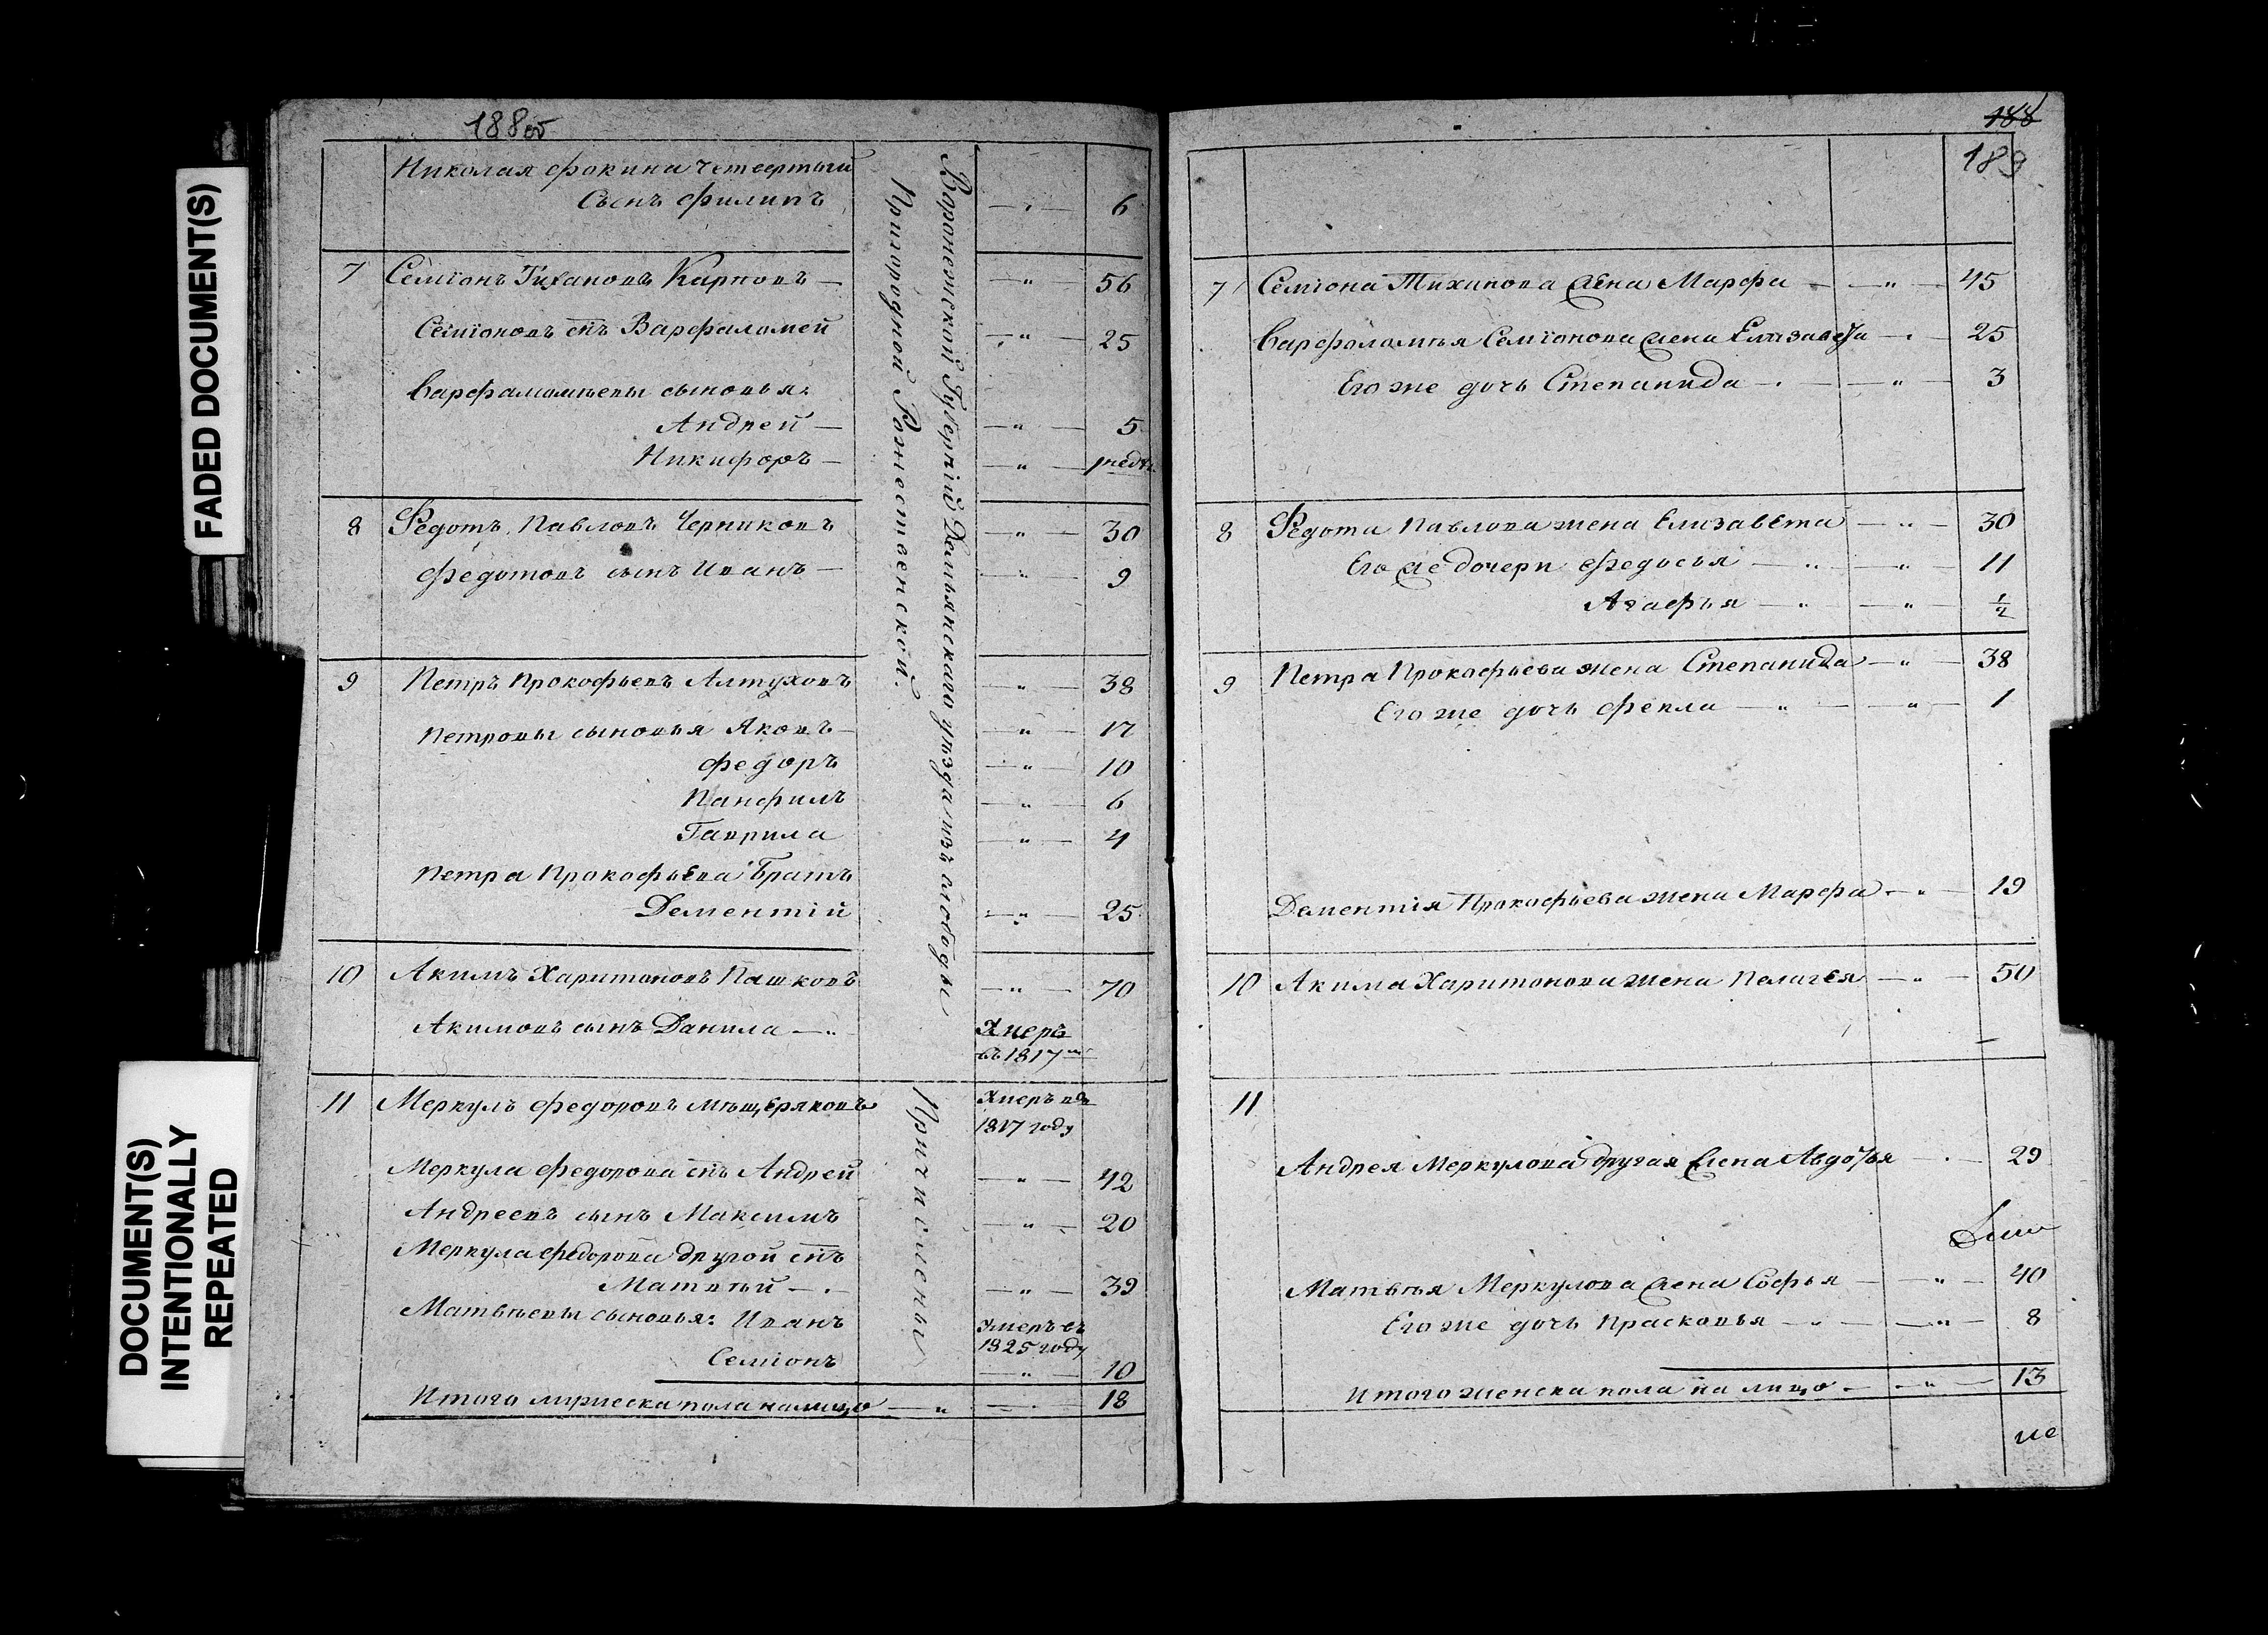 FADED DOCUMENT(S)
DOCUMENT(S)
INTENTIONALLY
REPEATED
188об
Николая Фокина четвертый
Сынъ Филипъ — " — 6
7 Семіонъ Тихановъ Карповъ — " — 56
Семіоновъ сн҃ъ Варфаломей — " — 25
Варфаломѣевы сыновья:
Андрей — " — 5
Никифоръ — " —
8 Федотъ Павловъ Черниковъ — " — 30
Федотовъ сынъ Иванъ — " — 9
9 Петръ Прокофьевъ Алтуховъ — " — 38
Петровы сыновья Яковъ — " — 17
Федоръ — " — 10
Панфилъ — " — 6
Гаврила — " — 4
Петра Прокофьева Братъ
Дементій — " — 25
10 Акимъ Харитоновъ Пашковъ — " — 70
Акимовъ сынъ Данила — " Умеръ
въ 1817мъ
11 Меркулъ Федоровъ Мѣщеряковъ Умеръ въ
1817 году
Меркула Федорова сн҃ъ Андрей — " — 42
Андреевъ сынъ Максимъ — " — 20
Меркула Федорова другой сн҃ъ
Матвѣй — " — 39
Матвѣевы сыновья: Иванъ умеръ въ
1825 году
Семіонъ — " — 10
Итого мужеска пола налицо — " — 18
Воронежской Губерніи уѣзда изъ слободы
Пригородной Рожественской.
Причислены
188
189
7 Семіона Тихинова жена Марфа — " — 45
Варфоломѣя Семіонова жена Елизавета — " — 25
Его же дочь Степанида — " — 3
8 Федота Павлова жена Елизавета — " — 30
Его же дочери Федосья — " — 11
Агафья — " — ½
9 Петра Прокофьева жена Степанида — " — 38
Его же дочь Фекла — " — 1
Дементія Прокофьева жена Марфа — " — 19
10 Акима Харитонова жена Пелагея — " — 50
11
Андрея Меркулова другая жена Авдотья — " — 29
Матвѣя Меркулова жена Софья — " — 40
Его же дочь Прасковья — " — 8
Итого женска пола на лицо — " — 13